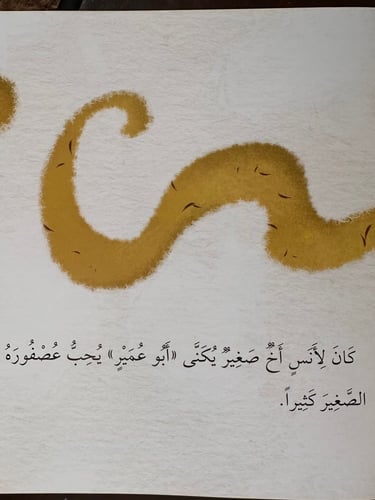 كَانَ لِأَنَسٍ أَخٌ صَغِيرٌ يُكَنَّى «أَبُو عُمَيْرٍ» يُحِبُّ عُصْفُورَهُ
الصَّغِيرَ كَثِيراً.